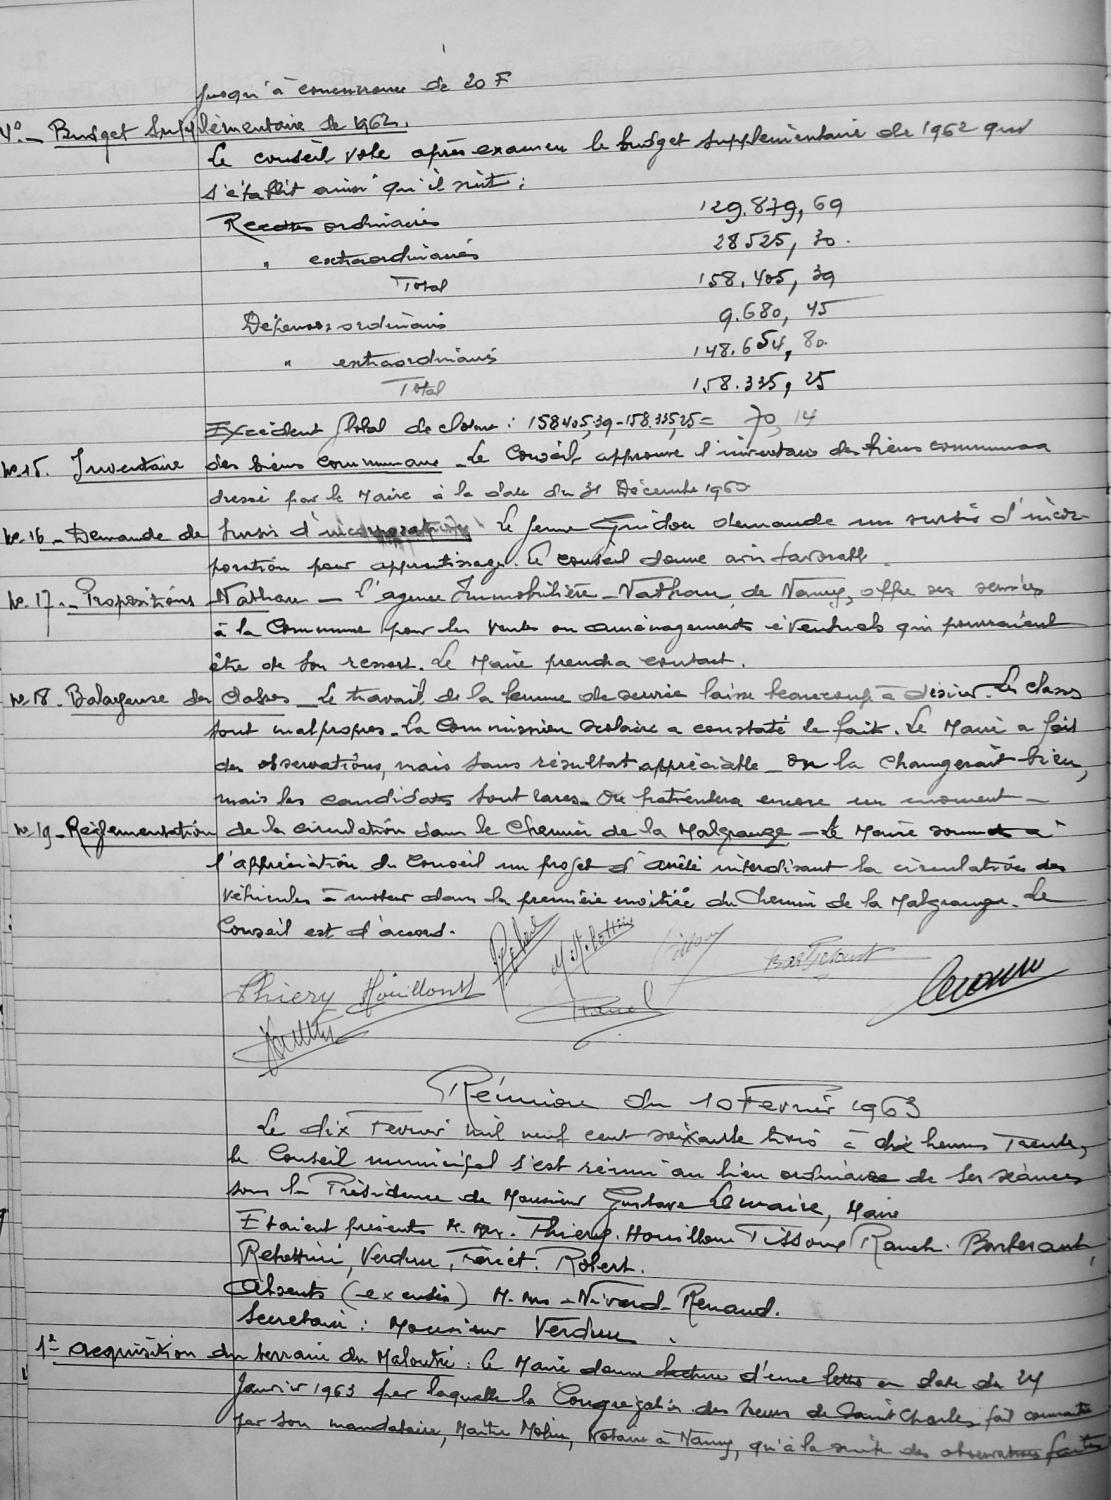 jusqu'à concurrence de 20 F
4°_ Budget supplémentaire de 1962.
Le conseil vote après examen le budget supplémentaire de 1962 qui
s'établit ainsi qu'il suit :
Recettes ordinaires 129.879,69
" extraordinaires 28525,70.
Total 158.405,39
Dépenses ordinaires 9.680,45
" extraordinaires 148.654,80
Total 158.335,25
Excédent global de clôture : 158405,39-158.335,25= 70,14
N° 15. Inventaire des biens communaux _ Le Conseil approuve l'inventaire des biens communaux
dressé par le Maire à la date du 31 Décembre 1960
N° 16_ Demande de sursis d'incorporation Le jeune Guidou demande un sursis d'incor-
poration pour apprentissage. Le conseil donne avis favorable.
N° 17._ Propositions Nathan _ l'agence Immobilière _ Nathan, de Nancy, offre ses services
à la Commune pour les ventes ou aménagements éventuels qui pourraient
être de son ressort. Le Maire prendra contact.
N° 18. Balayeuse des classes _ Le travail de la femme de service laisse beaucoup à désirer. Les classes
sont malpropres. La Commission scolaire a constaté le fait. Le Maire a fait
des observations, mais sans résultat appréciable _ On la changerait bien,
mais les candidats sont rares. On patientera encore un moment _
N° 19_ Réglementation de la circulation dans le Chemin de la Malgrange _ Le Maire soumet à
l'appréciation du Conseil un projet d'arrêté interdisant la circulation des
véhicules à moteur dans la première moitié du Chemin de la Malgrange. Le
Conseil est d'accord.
Thiery Houillon
Réunion du 10 Fevrier 1963
Le dix Fevrier mil neuf cent soixante trois à dix heures Trente,
le Conseil municipal s'est réuni au lieu ordinaire de ses séances
sous la Présidence de Monsieur Gustave Lemaire, Maire
Etaient présents M. Mrs. Thiery. Houillon Tissoux Rauch. Barberant,
Rebottini, Verdun, Feriet. Robert.
Absents (excusés) M. Mrs _ Nivard _ Renaud.
Secretaire : Monsieur Verdun.
1°- acquisition du terrain du Maloutri : Le Maire donne lecture d'une lettre en date du 24
Janvier 1963 par laquelle la Congrégation des Soeurs de Saint Charles fait connaitre
par son mandataire, Maitre Molin, Notaire à Nancy, qu'à la suite des observations faites